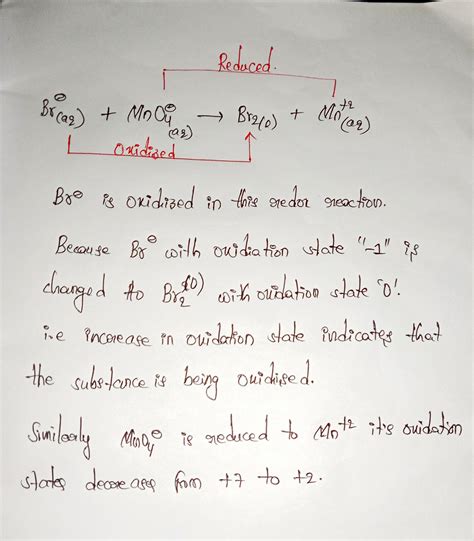 Reduced.
Br⊖(aq) + MnO4⊖(aq) → Br2(l) + Mn+2(aq)
Oxidised
Br⊖ is oxidized in this redox reaction.
Because Br⊖ with ouidiation state "-1" is
changed to Br2(0) with ouidation state '0'.
i.e increase in ouidation state indicates that
the substance is being ouidised.
Similarly MnO4⊖ is reduced to Mn+2 it's ouidation
states decreases from +7 to +2.